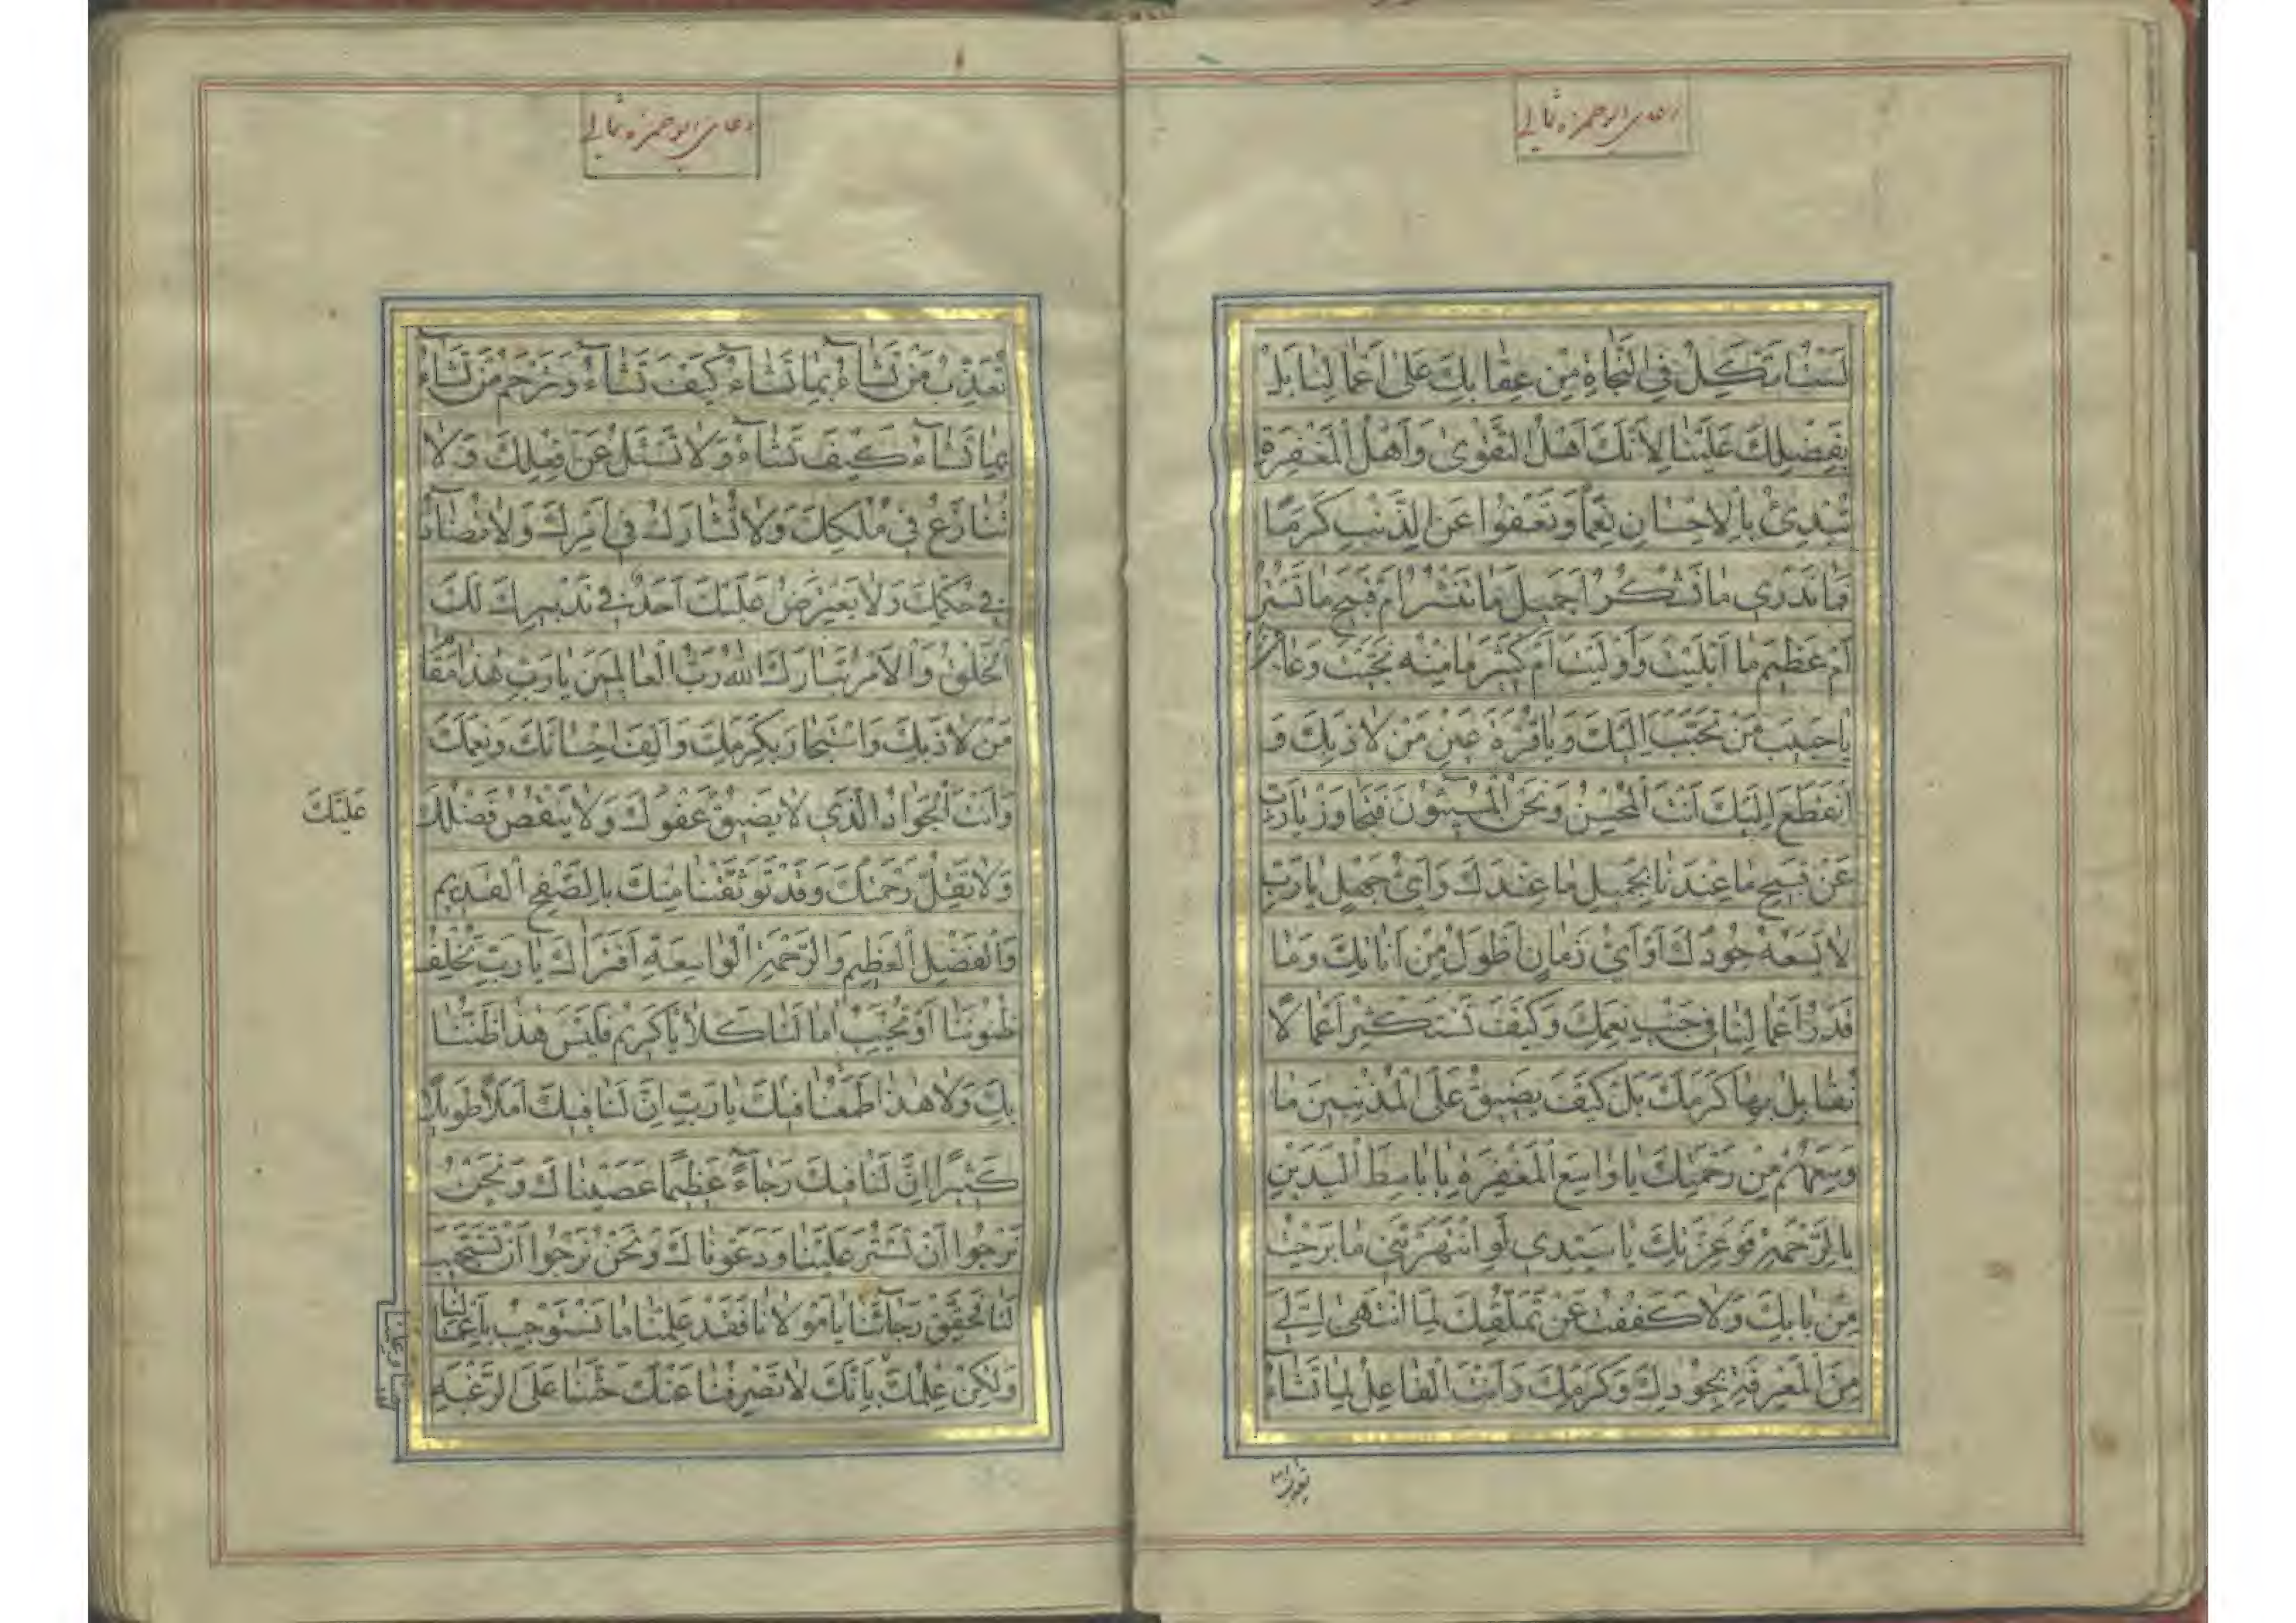 دعای ابوحمزه ثمالی
لَسْنَا نَتَّكِلُ فِي النَّجَاةِ مِنْ عِقَابِكَ عَلَى أَعْمَالِنَا بَلْ
بِفَضْلِكَ عَلَيْنَا لِأَنَّكَ أَهْلُ التَّقْوَىٰ وَأَهْلُ الْمَغْفِرَةِ
تُبْدِئُ بِالْإِحْسَانِ نِعَمًا وَتَعْفُوا عَنِ الذَّنْبِ كَرَمًا
فَمَا نَدْرِي مَا نَشْكُرُ أَجَمِيلَ مَا تَنْشُرُ أَمْ قَبِيحَ مَا تَسْتُرُ
أَمْ عَظِيمَ مَا أَبْلَيْتَ وَأَوْلَيْتَ أَمْ كَثِيرَ مَا مِنْهُ نَجَّيْتَ وَعَافَيْتَ
يَا حَبِيبَ مَنْ تَحَبَّبَ إِلَيْكَ وَيَا قُرَّةَ عَيْنِ مَنْ لَاذَ بِكَ وَ
انْقَطَعَ إِلَيْكَ أَنْتَ الْمُحْسِنُ وَنَحْنُ الْمُسِيئُونَ فَتَجَاوَزْ يَا رَبِّ
عَنْ قَبِيحِ مَا عِنْدَنَا بِجَمِيلِ مَا عِنْدَكَ وَأَيُّ جَهْلٍ يَا رَبِّ
لَا يَسَعُهُ جُودُكَ أَوْ أَيُّ زَمَانٍ أَطْوَلُ مِنْ أَنَاتِكَ وَمَا
قَدْرُ أَعْمَالِنَا فِي جَنْبِ نِعَمِكَ وَكَيْفَ نَسْتَكْثِرُ أَعْمَالًا
نُقَابِلُ بِهَا كَرَمَكَ بَلْ كَيْفَ يَضِيقُ عَلَى الْمُذْنِبِينَ مَا
وَسِعَهُمْ مِنْ رَحْمَتِكَ يَا وَاسِعَ الْمَغْفِرَةِ يَا بَاسِطَ الْيَدَيْنِ
بِالرَّحْمَةِ فَوَعِزَّتِكَ يَا سَيِّدِي لَوِ انْتَهَرْتَنِي مَا بَرِحْتُ
مِنْ بَابِكَ وَلَا كَفَفْتُ عَنْ تَمَلُّقِكَ لِمَا انْتَهَىٰ إِلَيَّ
مِنَ الْمَعْرِفَةِ بِجُودِكَ وَكَرَمِكَ وَأَنْتَ الْفَاعِلُ لِمَا تَشَاءُ
دعای ابوحمزه ثمالی
تُعَذِّبُ مَنْ تَشَاءُ بِمَا تَشَاءُ كَيْفَ تَشَاءُ وَتَرْحَمُ مَنْ تَشَاءُ
بِمَا تَشَاءُ كَيْفَ تَشَاءُ وَلَا تُسْئَلُ عَنْ فِعْلِكَ وَلَا
تُنَازَعُ فِي مُلْكِكَ وَلَا تُشَارَكُ فِي أَمْرِكَ وَلَا تُضَادُّ
فِي حُكْمِكَ وَلَا يَعْتَرِضُ عَلَيْكَ أَحَدٌ فِي تَدْبِيرِكَ لَكَ
الْخَلْقُ وَالْأَمْرُ تَبَارَكَ اللهُ رَبُّ الْعَالَمِينَ يَا رَبِّ هٰذَا مَقَامُ
مَنْ لَاذَ بِكَ وَاسْتَجَارَ بِكَرَمِكَ وَأَلِفَ إِحْسَانَكَ وَنِعَمَكَ
وَأَنْتَ الْجَوَادُ الَّذِي لَا يَضِيقُ عَفْوُكَ وَلَا يَنْقُصُ فَضْلُكَ
وَلَا تَقِلُّ رَحْمَتُكَ وَقَدْ تَوَثَّقْنَا مِنْكَ بِالصَّفْحِ الْقَدِيمِ
وَالْفَضْلِ الْعَظِيمِ وَالرَّحْمَةِ الْوَاسِعَةِ أَفَتَرَاكَ يَا رَبِّ تُخْلِفُ
ظُنُونَنَا أَوْ تُخَيِّبُ آمَالَنَا كَلَّا يَا كَرِيمُ فَلَيْسَ هٰذَا ظَنُّنَا
بِكَ وَلَا هٰذَا طَمَعُنَا فِيكَ يَا رَبِّ إِنَّ لَنَا فِيكَ أَمَلًا طَوِيلًا
كَثِيرًا إِنَّ لَنَا فِيكَ رَجَاءً عَظِيمًا عَصَيْنَاكَ وَنَحْنُ
نَرْجُوا أَنْ تَسْتُرَ عَلَيْنَا وَدَعَوْنَاكَ وَنَحْنُ نَرْجُوا أَنْ تَسْتَجِيبَ
لَنَا فَحَقِّقْ رَجَائَنَا يَا مَوْلَانَا فَقَدْ عَلِمْنَا مَا نَسْتَوْجِبُ بِأَعْمَالِنَا
وَلٰكِنْ عِلْمُكَ بِأَنَّكَ لَا تَصْرِفُنَا عَنْكَ حَثَّنَا عَلَى الرَّغْبَةِ